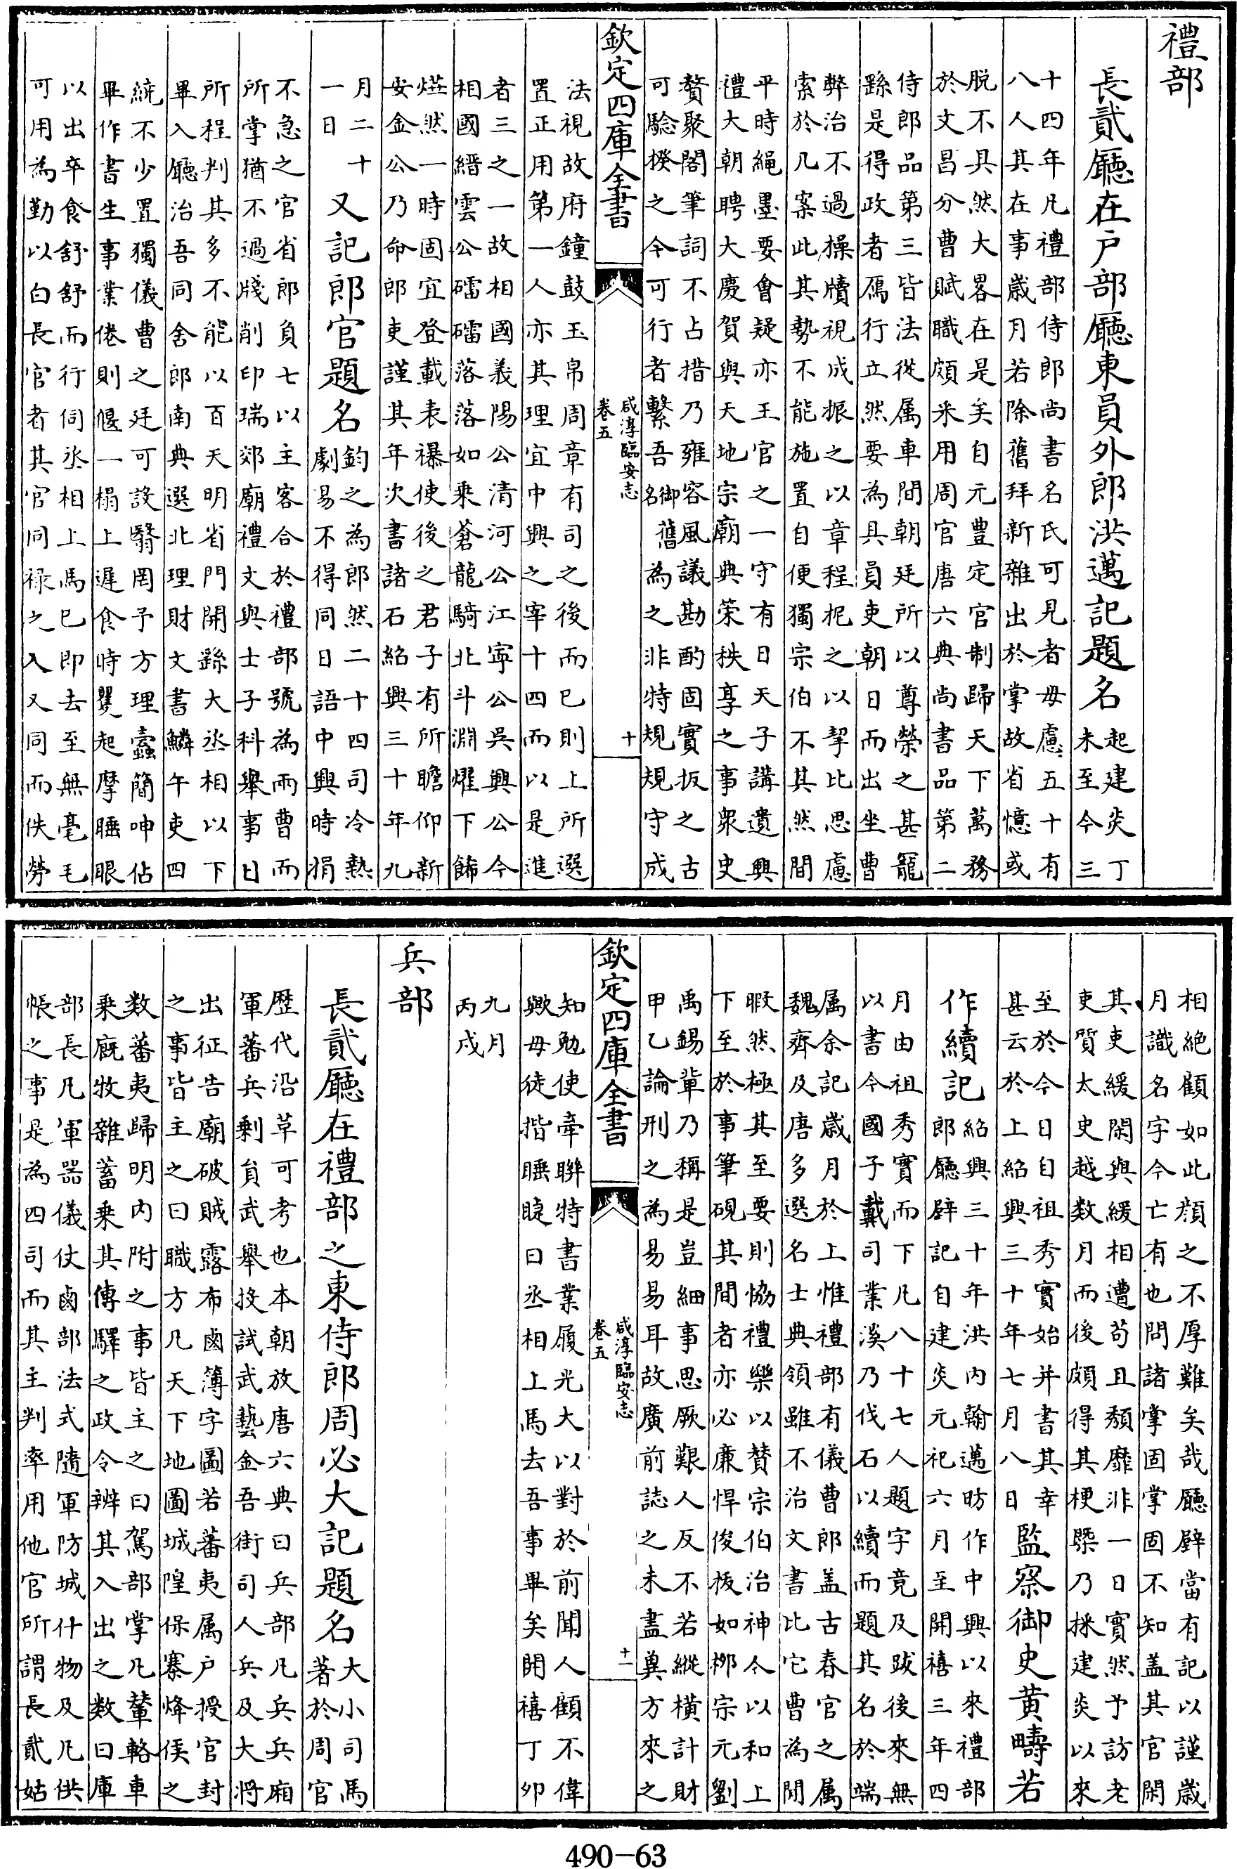 禮部
長貳廳在户部廳東員外郎洪邁記題名
起建炎丁
未至今三
十四年凡禮部侍郎尚書名氏可見者毋慮五十有
八人其在事歲月若除舊拜新雜出於掌故省憶或
脱不具然大畧在是矣自元豊定官制歸天下萬務
於文昌分曹賦職頗采用周官唐六典尚書品第二
侍郎品第三皆法從属車間朝廷所以尊榮之甚寵
繇是得政者鴈行立然要為具員吏朝日而出坐曹
弊治不過操牘視成振之以章程柅之以挈比思慮
索於几案此其勢不能施置自便獨宗伯不其然間
平時繩墨要會疑亦王官之一守有日天子講遺興
禮大朝聘大慶賀與天地宗廟典榮秩享之事衆史
贅聚閣筆詞不占措乃雍容風議勘酌固實扳之古
可驗揆之今可行者繫吾御名舊為之非特規規守成
欽定四庫全書
咸淳臨安志
卷五
十
法視故府鐘鼓玉帛周章有司之後而已則上所選
置正用第一人亦其理宜中興之宰十四而以是進
者三之一故相國義陽公清河公江寧公吳興公今
相國縉雲公礌礌落落如乘蒼龍騎北斗淵耀下飾
㷀然一時固宜登載表襮使後之君子有所瞻仰新
安金公乃命郎吏謹其年次書諸石紹興三十年九
月二十
一日
又記郎官題名
鈞之為郎然二十四司冷熱
劇易不得同日語中興時捐
不急之官省郎負七以主客合於禮部號為兩曹而
所掌猶不過牋削印瑞郊廟禮文與士子科舉事日
所程判其多不能以百天明省門開繇大丞相以下
畢入廳治吾同舍郎南典選北理財文書鱗午吏四
統不少置獨儀曹之廷可設翳罔予方理蠧簡呻佔
畢作書生事業倦則偃一榻上遲食時矍起摩睡眼
以出卒食舒舒而行伺丞相上馬已即去至無毫毛
可用為勤以白長官者其官同禄之入又同而佚勞
相絶顧如此顔之不厚難矣哉廳壁當有記以謹歲
月識名字今亡有也問諸掌固掌固不知盖其官閑
其吏緩閑與緩相遭苟且頹靡非一日實然予訪老
吏質太史越数月而後頗得其梗槩乃採建炎以來
至於今日自祖秀實始并書其幸
甚云於上紹興三十年七月八日
監察御史黄疇若
作續記
紹興三十年洪内翰邁昉作中興以來禮部
郎廳壁記自建炎元祀六月至開禧三年四
月由祖秀實而下凡八十七人題字竟及跋後來無
以書今國子戴司業溪乃伐石以續而題其名於端
属余記歲月於上惟禮部有儀曹郎盖古春官之属
魏齊及唐多選名士典領雖不治文書比它曹為閒
暇然極其至要則協禮樂以賛宗伯治神今以和上
下至於事筆硯其間者亦必廉悍俊扳如栁宗元劉
禹錫軰乃稱是豈細事思厥艱人反不若縱横計財
甲乙論刑之為易易耳故廣前誌之未盡兾方來之
欽定四庫全書
咸淳臨安志
卷五
十一
知勉使牽聨特書業履光大以對於前聞人顧不偉
歟毋徒揩睡睫曰丞相上馬去吾事畢矣開禧丁卯
九月
丙戌
兵部
長貳廳在禮部之東侍郎周必大記題名
大小司馬
著於周官
歴代沿革可考也本朝放唐六典曰兵部凡兵兵廂
軍蕃兵剰負武舉技試武藝金吾街司人兵及大將
出征告廟破賊露布鹵簿字圖若蕃夷属户授官封
之事皆主之曰職方凡天下地圖城隍保寨烽候之
数蕃夷歸明内附之事皆主之曰駕部掌凡輦輅車
乗廐牧雜蓄乗其傳驛之政令辨其入出之数曰庫
部長凡軍器儀仗鹵部法式隨軍防城什物及凡供
帳之事是為四司而其主判率用他官所謂長貳姑
490-63